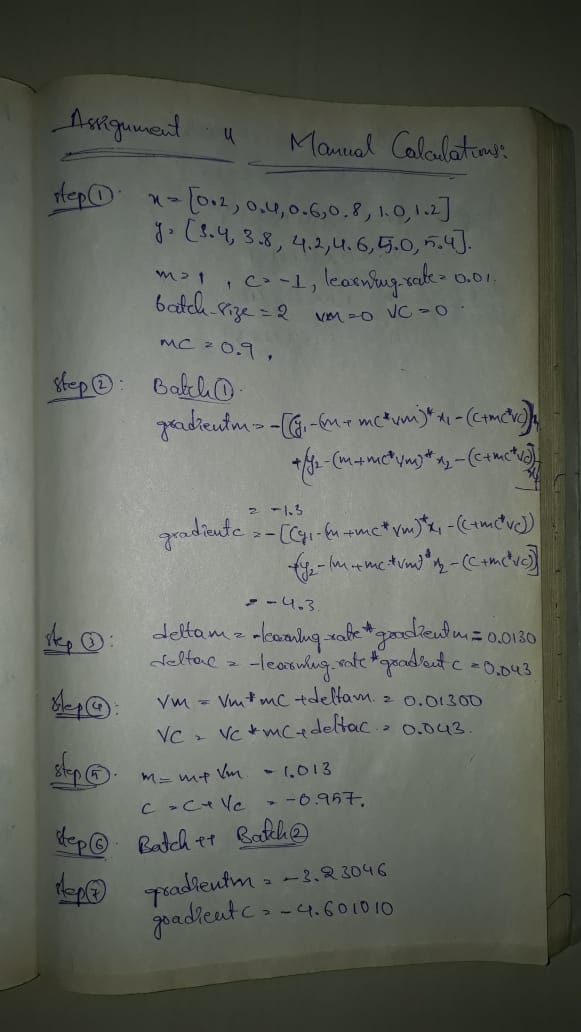 Assignment 4 Manual Calculations:
step ① x = [0.2, 0.4, 0.6, 0.8, 1.0, 1.2]
y = [3.4, 3.8, 4.2, 4.6, 5.0, 5.4].
m = 1, c = -1, learning-rate = 0.01.
batch-size = 2 vm = 0 vc = 0.
mc = 0.9.
step ②: Batch ①.
gradientm = -[(y₁-(m+mc*vm)*x₁-(c+mc*vc))x₁
+(y₂-(m+mc*vm)*x₂-(c+mc*vc))
= -1.3
gradientc = -[(y₁-(m+mc*vm)*x₁-(c+mc*vc))
+(y₂-(m+mc*vm)*x₂-(c+mc*vc))]
= -4.3
step ③: deltam = -learning-rate*gradientm = 0.0130
deltac = -learning-rate*gradient c = 0.043
step ④: vm = vm*mc+deltam. = 0.01300
vc = vc*mc+deltac = 0.043.
step ⑤. m = m+vm. = 1.013
c = c+vc = -0.957.
step ⑥. Batch ++ Batch ②
step ⑦ gradientm = -3.23046
gradientc = -4.601010